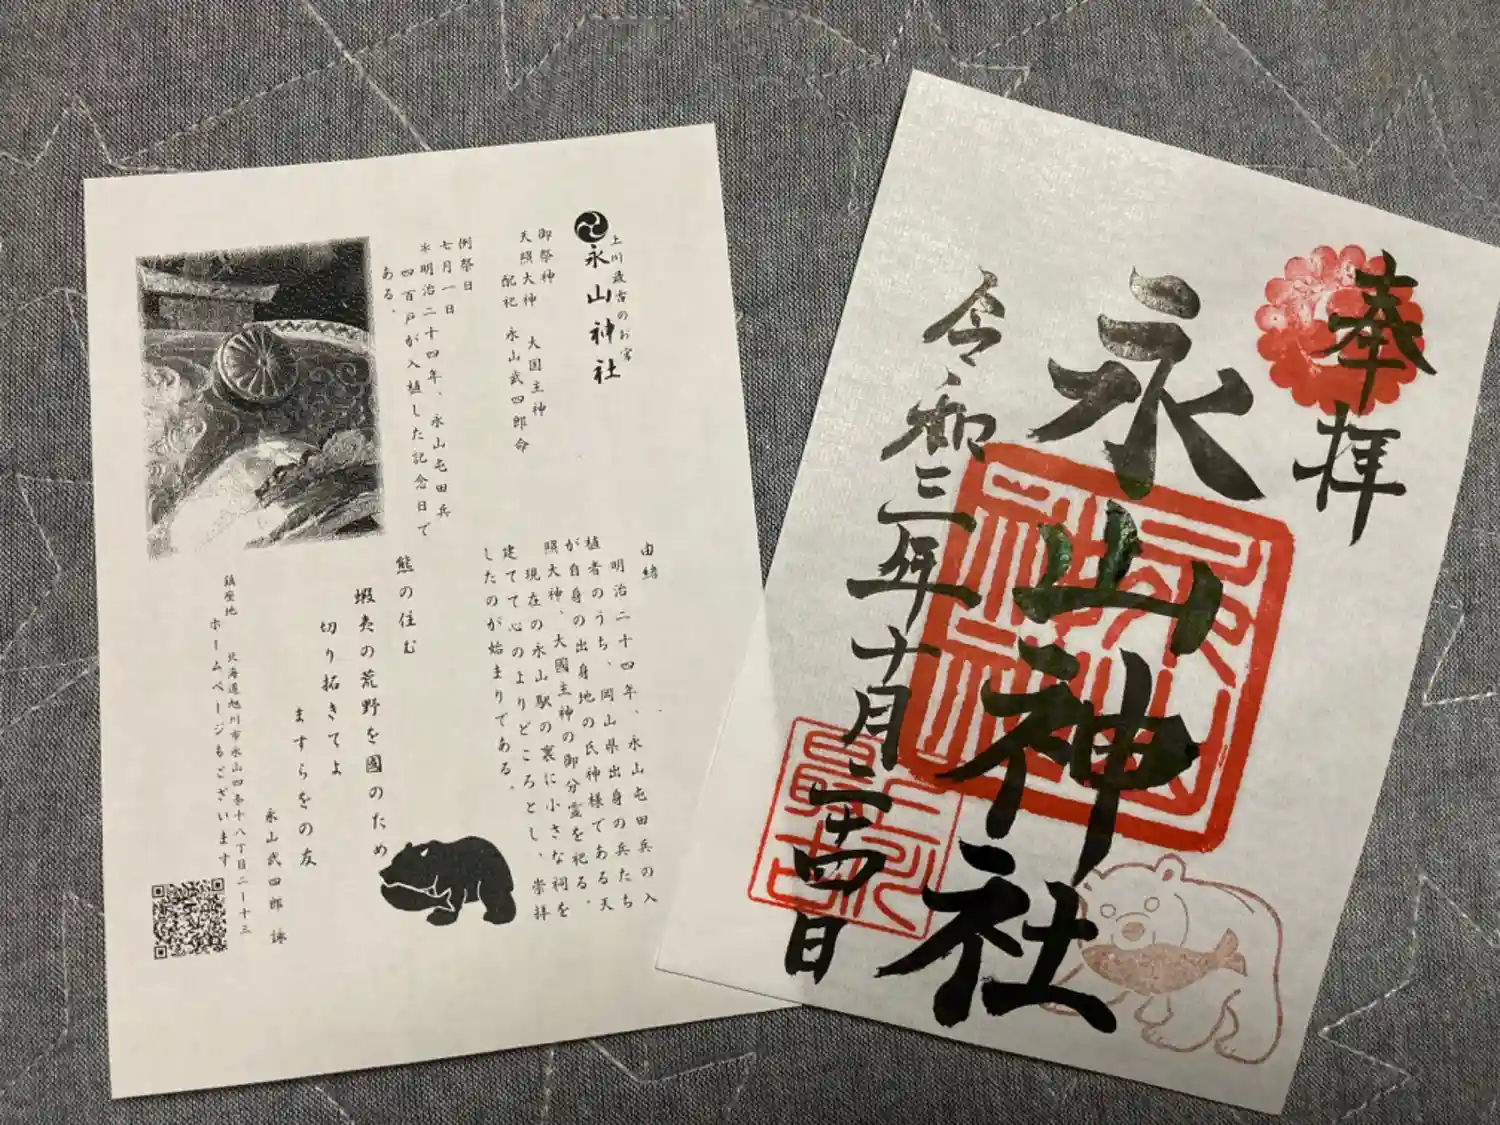 上川最古のお宮
永山神社
御祭神
天照大神　大国主神
配祀　永山武四郎命
例祭日
七月一日
※明治二十四年、永山屯田兵
四百戸が入植した記念日で
ある。
由緒
明治二十四年、永山屯田兵の入
植者のうち、岡山県出身の兵たち
が自身の出身地の氏神様である天
照大神、大國主神の御分霊を祀る。
現在の永山駅の裏に小さな祠を
建てて心のよりどころとし、崇拝
したのが始まりである。
熊の住む
蝦夷の荒野を國のため
切り拓きてよ
ますらをの友
永山武四郎　詠
鎮座地　北海道旭川市永山四条十八丁目二ー十三
ホームページもございます
奉拝
永山神社
令和三年十月二十四日
上川
最古